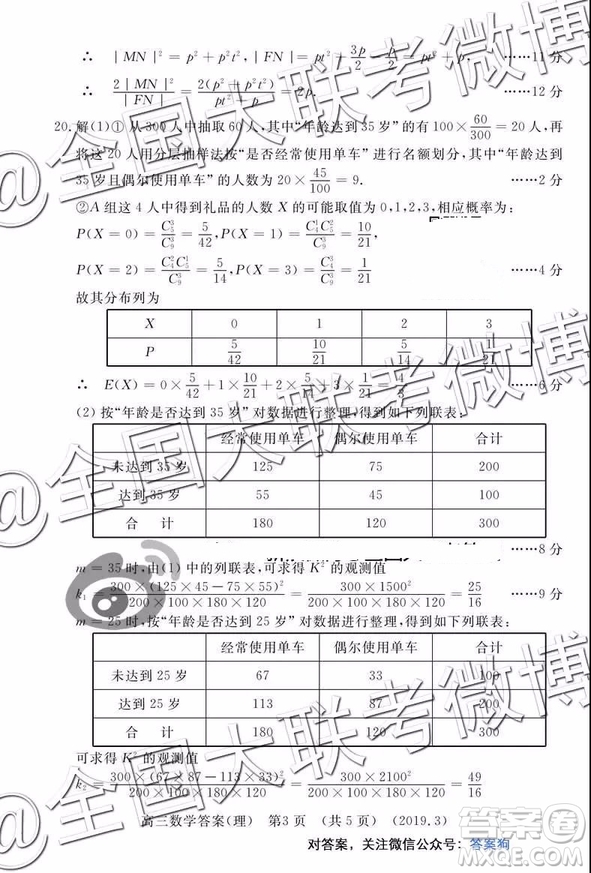 ∴ |MN|² = p² + p²t², |FN| = pt² + 3p/2 − p/2 = pt² + p. ……11分
∴ 2|MN|²/|FN| = 2(p² + p²t²)/(pt² + p) = 2p. ……12分
20. 解(1)① 从300人中抽取60人,其中“年龄达到35岁”的有100×60/300=20人,再
将这20人用分层抽样法按“是否经常使用单车”进行名额划分,其中“年龄达到
35岁且偶尔使用单车”的人数为20×45/100=9. ……2分
②A组这4人中得到礼品的人数X的可能取值为0,1,2,3,相应概率为:
P(X=0)=C₅³/C₉³=5/42, P(X=1)=C₄¹C₅²/C₉³=10/21,
P(X=2)=C₄²C₅¹/C₉³=5/14, P(X=3)=C₄³/C₉³=1/21. ……4分
故其分布列为
X 0 1 2 3
P 5/42 10/21 5/14 1/21
∴ E(X)=0×5/42+1×10/21+2×5/14+3×1/21=4/3 ……6分
(2) 按“年龄是否达到35岁”对数据进行整理,得到如下列联表:
经常使用单车 偶尔使用单车 合计
未达到35岁 125 75 200
达到35岁 55 45 100
合 计 180 120 300
……8分
m=35时,由(1)中的列联表,可求得K²的观测值
k₁=300×(125×45−75×55)²/(200×100×180×120)=300×1500²/(200×100×180×120)=25/16 ……9分
m=25时,按“年龄是否达到25岁”对数据进行整理,得到如下列联表:
经常使用单车 偶尔使用单车 合计
未达到25岁 67 33 100
达到25岁 113 87 200
合 计 180 120 300
可求得K²的观测值
k₂=300×(67×87−113×33)²/(200×100×180×120)=300×2100²/(200×100×180×120)=49/16
高三数学答案(理) 第3页 (共5页) (2019.3)
对答案,关注微信公众号:答案狗
@全国大联考微博
答案圈
MXQE.COM